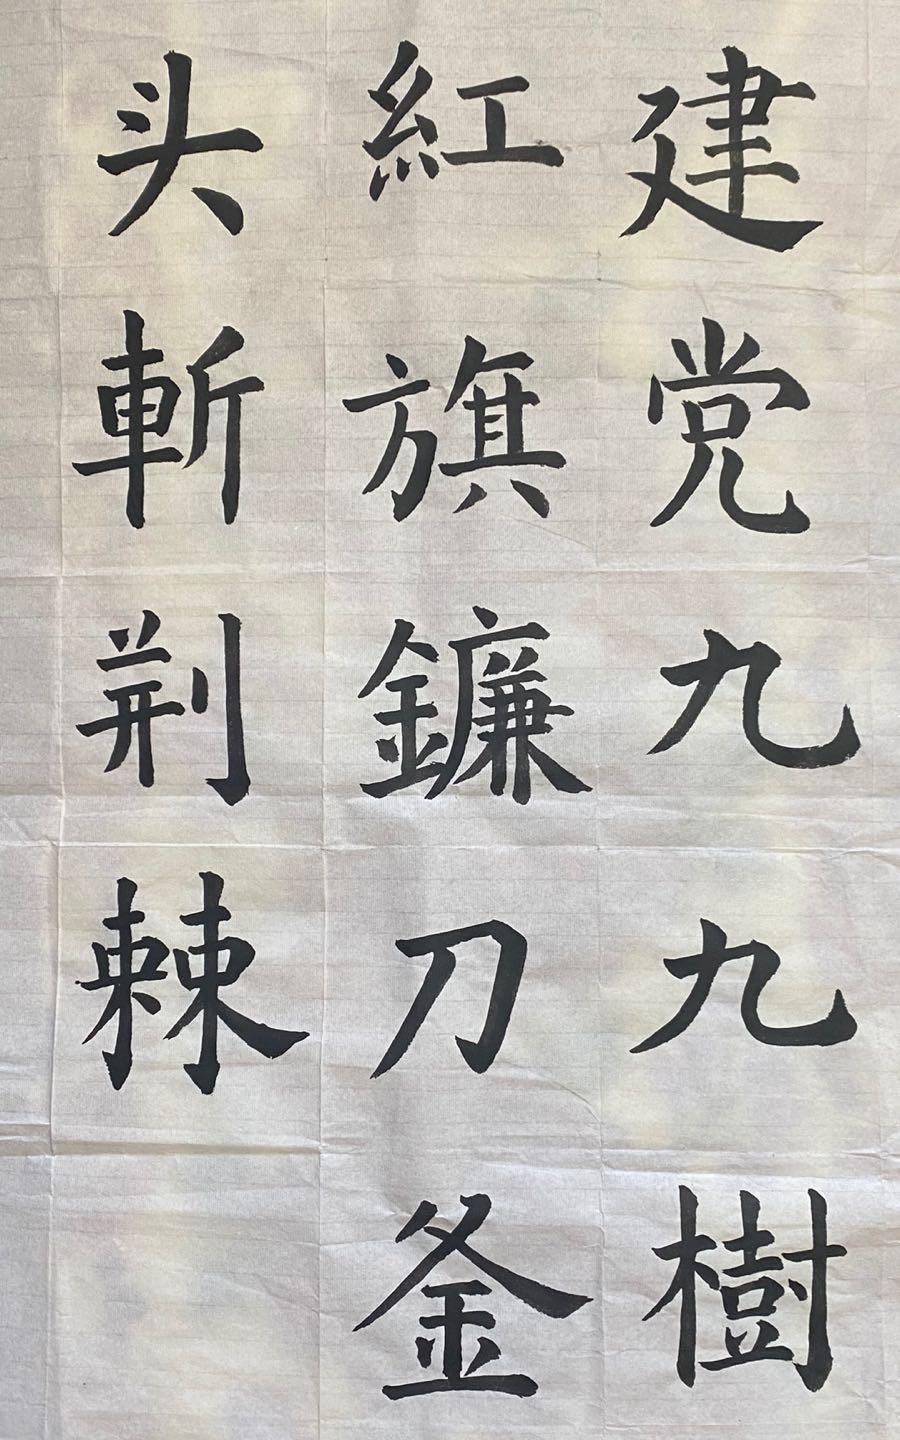 建党九九樹
紅旗鐮刀釜
头斬荆棘